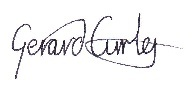 Gerard Curley